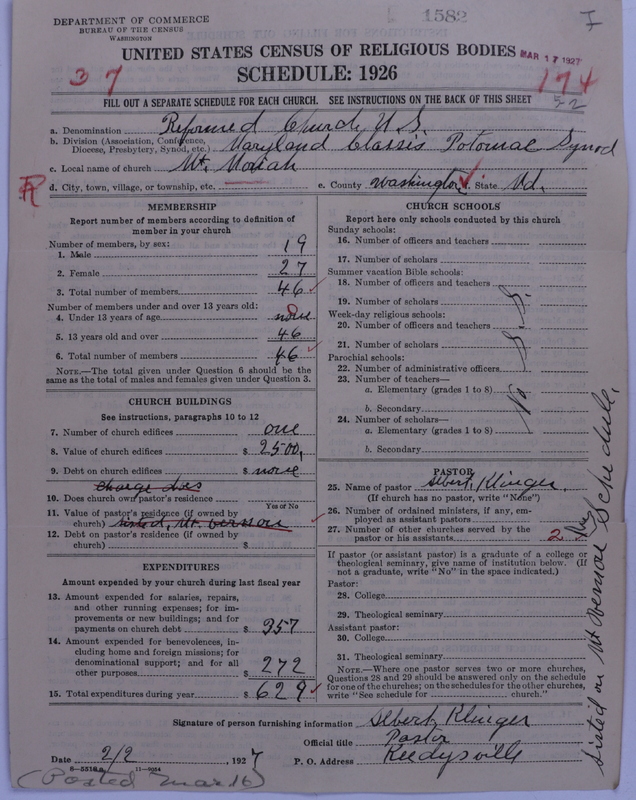 DEPARTMENT OF COMMERCE
BUREAU OF THE CENSUS
WASHINGTON
1582
I
UNITED STATES CENSUS OF RELIGIOUS BODIES
MAR 17 1927
37
SCHEDULE: 1926
174
52
FILL OUT A SEPARATE SCHEDULE FOR EACH CHURCH. SEE INSTRUCTIONS ON THE BACK OF THIS SHEET
a. Denomination Reformed Church, U.S.
b. Division (Association, Conference, Diocese, Presbytery, Synod, etc.) Maryland Classis, Potomac Synod
c. Local name of church Mt. Moriah
R
d. City, town, village, or township, etc. e. County Washington State Md.
MEMBERSHIP
Report number of members according to definition of
member in your church
Number of members, by sex:
1. Male 19
2. Female 27
3. Total number of members 46
Number of members under and over 13 years old:
4. Under 13 years of age none
5. 13 years old and over 46
6. Total number of members 46
NOTE.—The total given under Question 6 should be the
same as the total of males and females given under Question 3.
CHURCH BUILDINGS
See instructions, paragraphs 10 to 12
7. Number of church edifices one
8. Value of church edifices $ 2500,
9. Debt on church edifices $ none
charge does
10. Does church own pastor's residence
Yes or No
11. Value of pastor's residence (if owned by
church) listed, Mt. Vernon
12. Debt on pastor's residence (if owned by
church) $
EXPENDITURES
Amount expended by your church during last fiscal year
13. Amount expended for salaries, repairs,
and other running expenses; for im-
provements or new buildings; and for
payments on church debt $ 357
14. Amount expended for benevolences, in-
cluding home and foreign missions; for
denominational support; and for all
other purposes $ 272
15. Total expenditures during year $ 629
CHURCH SCHOOLS
Report here only schools conducted by this church
Sunday schools:
16. Number of officers and teachers
17. Number of scholars
Summer vacation Bible schools:
18. Number of officers and teachers
19. Number of scholars
Week-day religious schools:
20. Number of officers and teachers
21. Number of scholars
Parochial schools:
22. Number of administrative officers
23. Number of teachers—
a. Elementary (grades 1 to 8)
b. Secondary
24. Number of scholars—
a. Elementary (grades 1 to 8)
b. Secondary
No S.S.
PASTOR
25. Name of pastor Albert Klinger
(If church has no pastor, write "None")
26. Number of ordained ministers, if any, em-
ployed as assistant pastors
27. Number of other churches served by the
pastor or his assistants 2
If pastor (or assistant pastor) is a graduate of a college or
theological seminary, give name of institution below. (If
not a graduate, write "No" in the space indicated.)
Pastor:
28. College
29. Theological seminary
Assistant pastor:
30. College
31. Theological seminary
NOTE.—Where one pastor serves two or more churches,
Questions 28 and 29 should be answered only on the schedule
for one of the churches; on the schedules for the other churches,
write "See schedule for church."
Listed on Mt Vernon Schedule.
Signature of person furnishing information Albert Klinger
Official title Pastor
Date 2/2, 1927
P. O. Address Keedysville
8-5518a 11-9054
(Posted Mar 16)